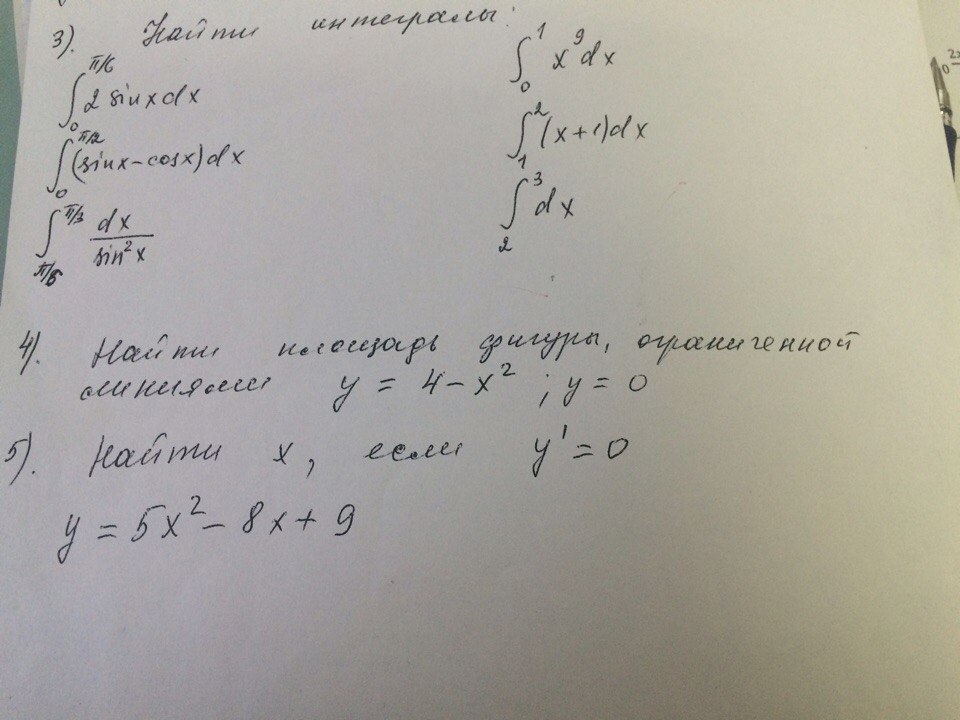 3). Найти интегралы:
∫₀^{π/6} 2 sinx dx
∫₀¹ x⁹dx
∫₀^{π/2} (sinx-cosx)dx
∫₁² (x+1)dx
∫_{π/6}^{π/3} dx/sin²x
∫₂³ dx
4). Найти площадь фигуры, ограниченной
линиями y = 4-x² ; y = 0
5). Найти x, если y' = 0
y = 5x² - 8x + 9